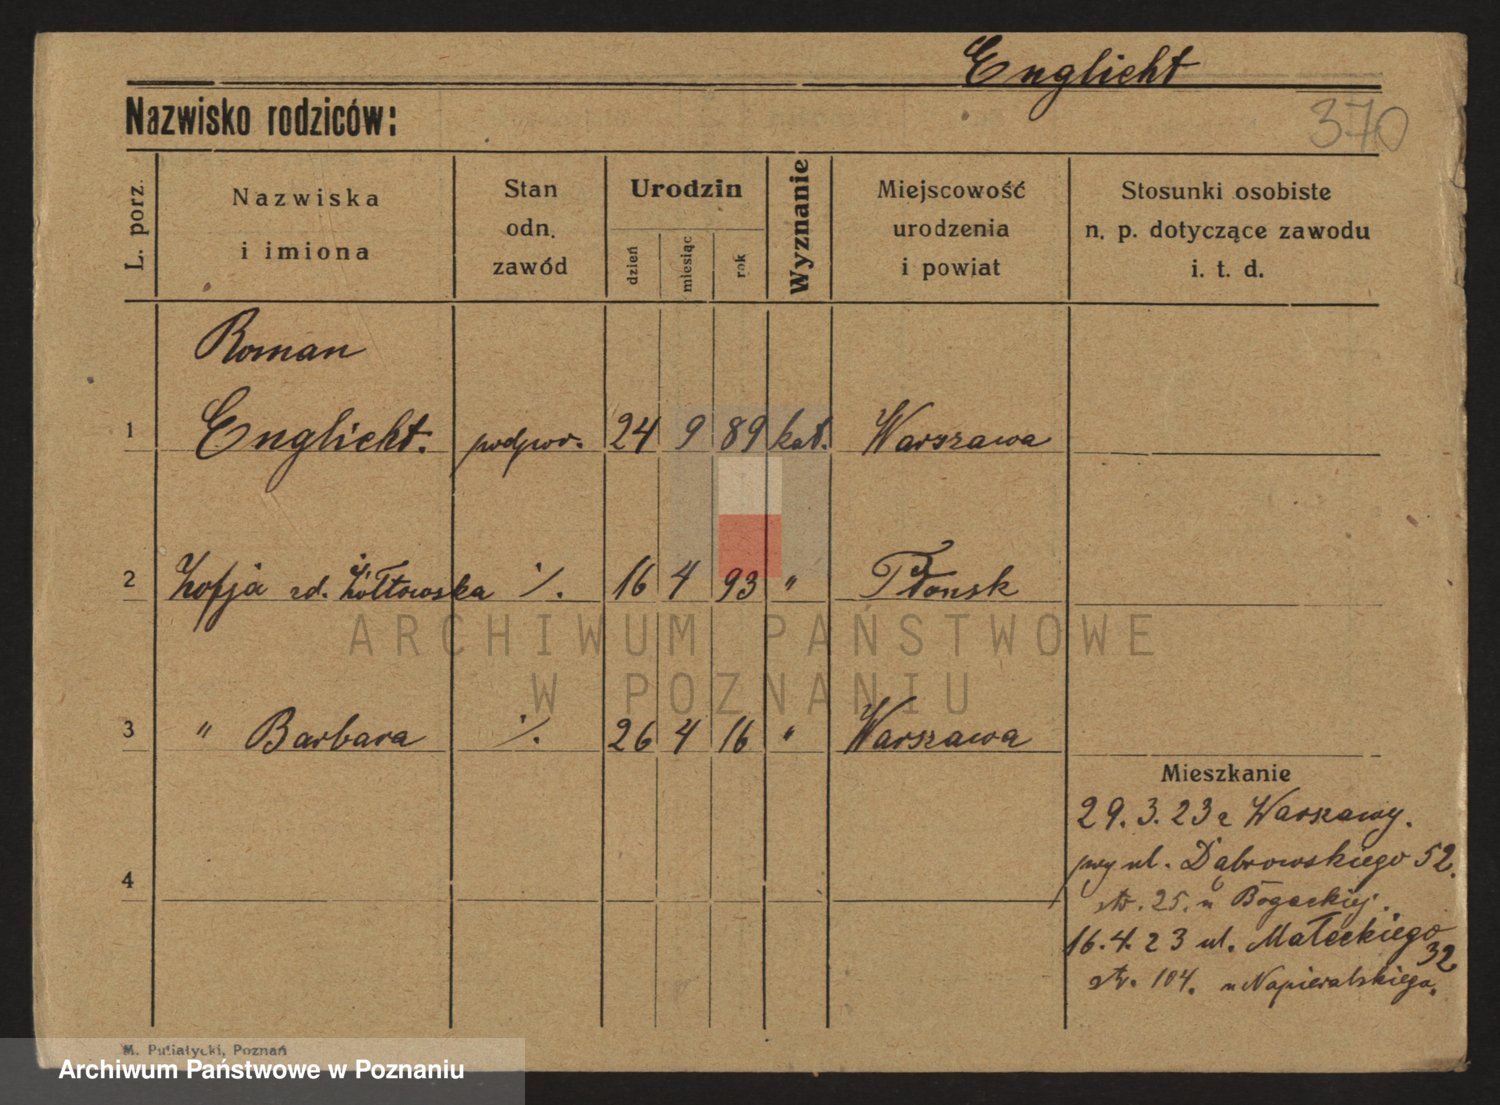 Englicht
Nazwisko rodziców:
370
L. porz.
Nazwiska
i imiona
Stan
odn.
zawód
Urodzin
dzień
miesiąc
rok
Wyznanie
Miejscowość
urodzenia
i powiat
Stosunki osobiste
n. p. dotyczące zawodu
i. t. d.
Roman
1 Englicht. podpor. 24 9 89 kat. Warszawa
2 Zofja zd. Żółtowska ./. 16 4 93 " Płonsk
3 " Barbara ./. 26 4 16 " Warszawa
Mieszkanie
29. 3. 23 z Warszawy.
przy ul. Dąbrowskiego 52.
4
str. 25. u Bogackiej.
16. 4. 23 ul. Małeckiego
32
str. 104. u Napieralskiego.
ARCHIWUM PAŃSTWOWE
W POZNANIU
M. Putiatycki, Poznań
Archiwum Państwowe w Poznaniu